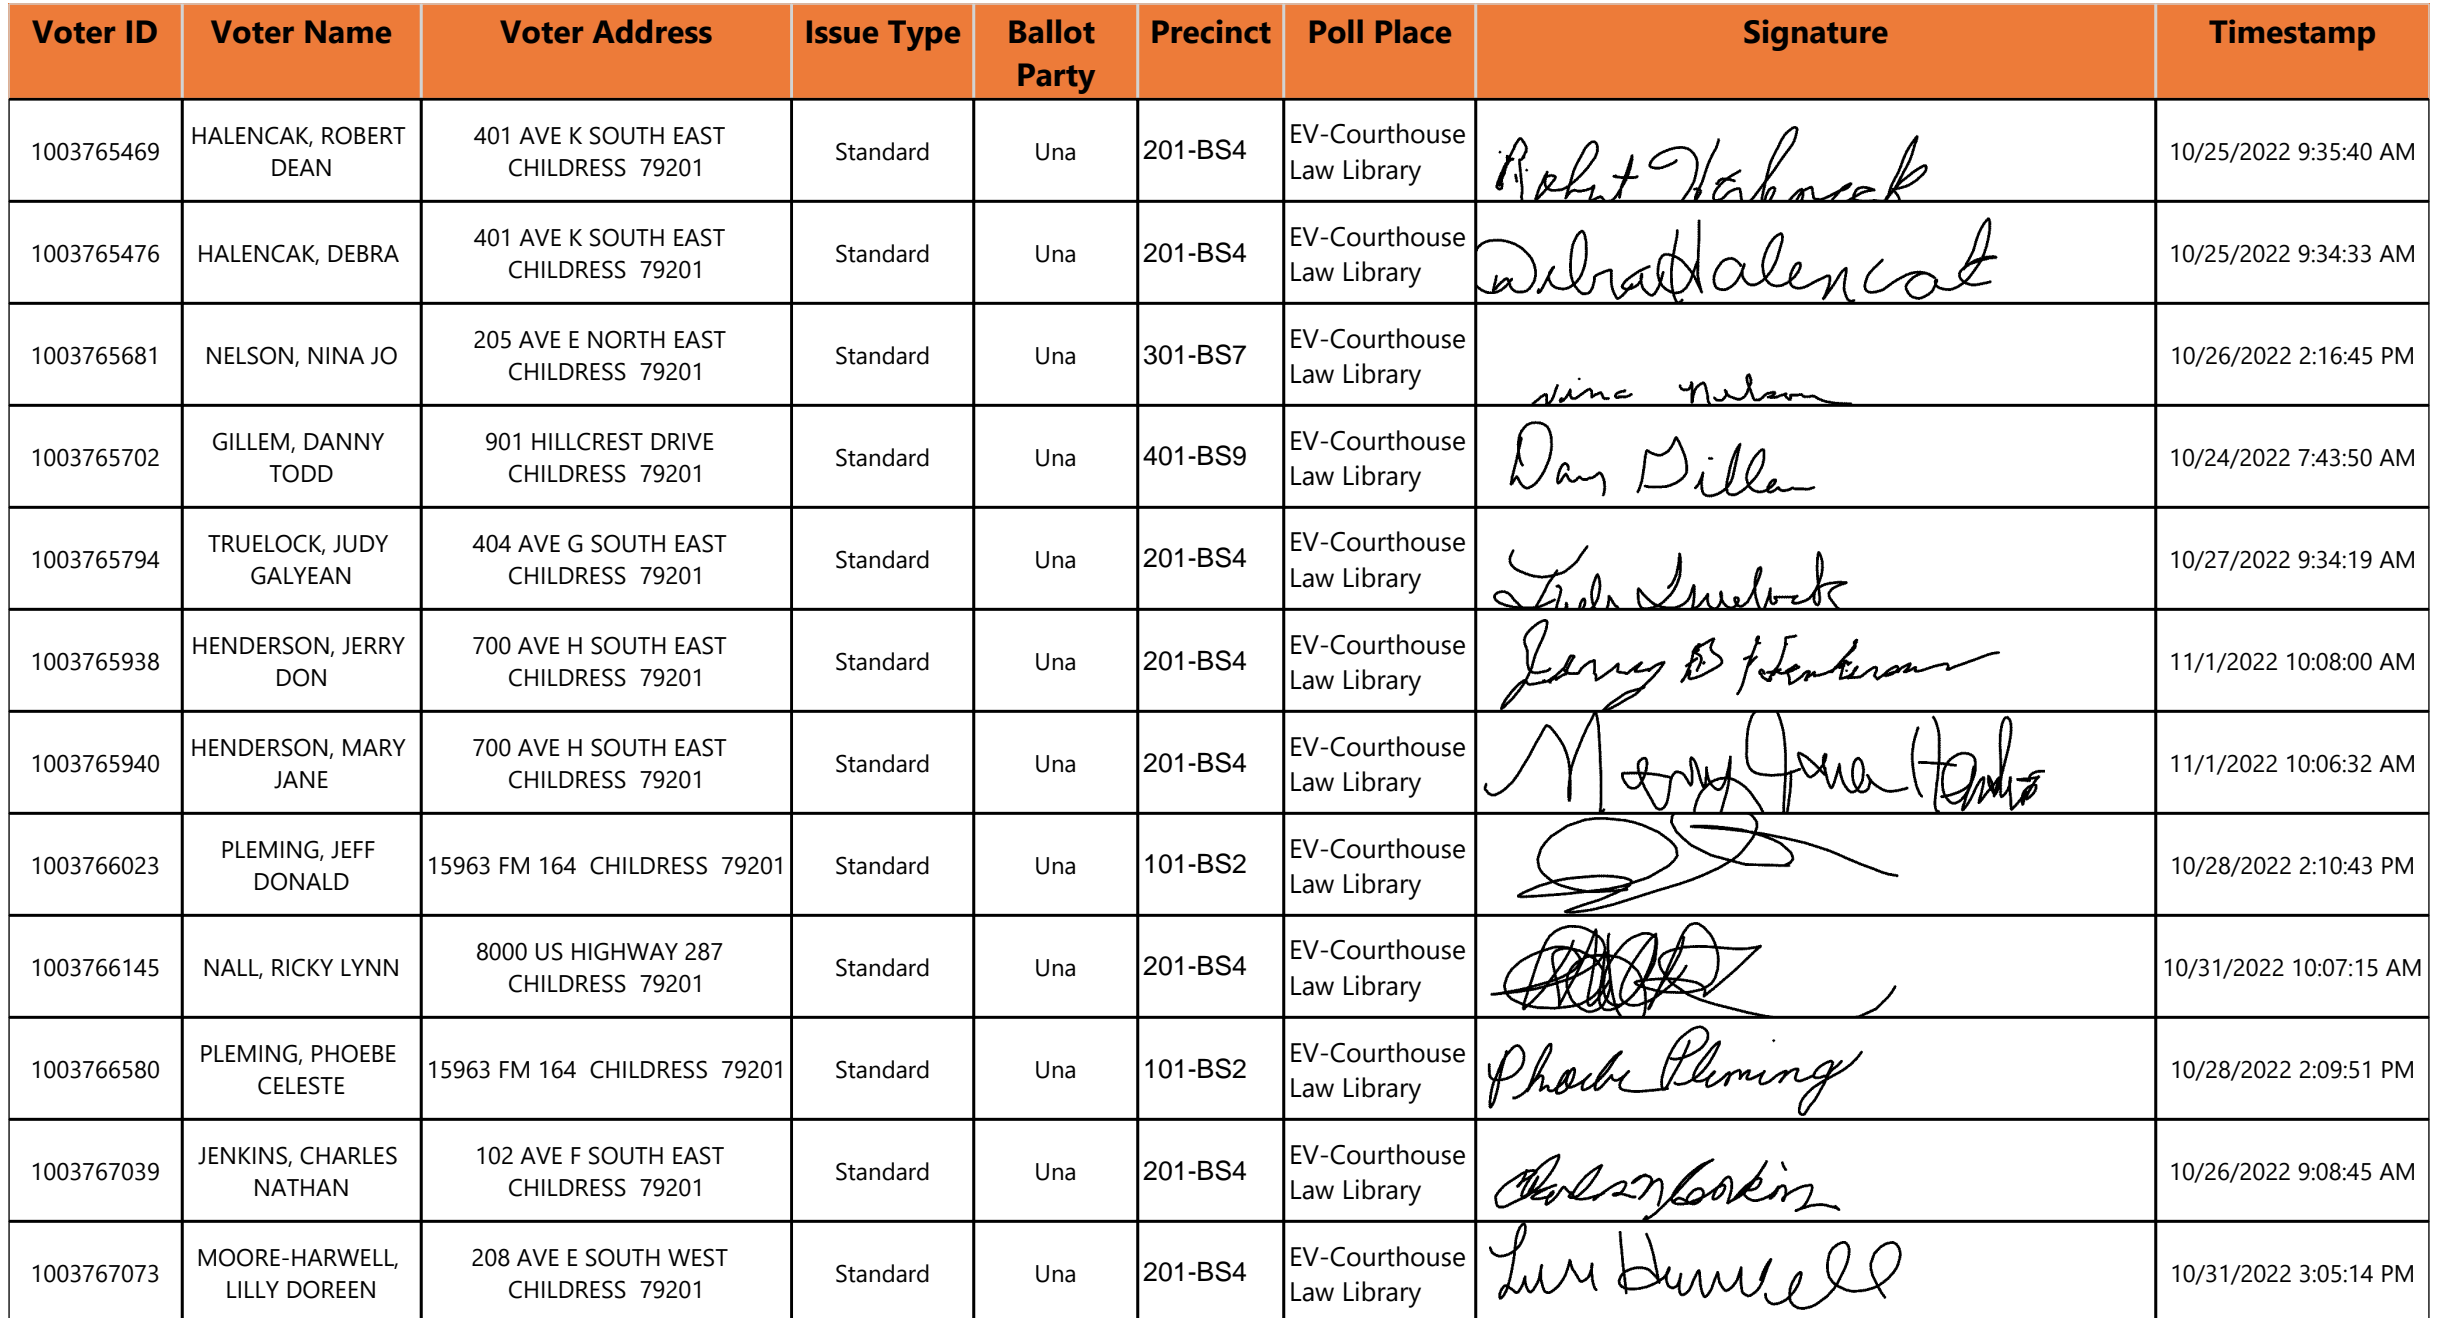 Voter ID Voter Name Voter Address Issue Type Ballot Party Precinct Poll Place Signature Timestamp
1003765469 HALENCAK, ROBERT DEAN 401 AVE K SOUTH EAST CHILDRESS 79201 Standard Una 201-BS4 EV-Courthouse Law Library Robert Halencak 10/25/2022 9:35:40 AM
1003765476 HALENCAK, DEBRA 401 AVE K SOUTH EAST CHILDRESS 79201 Standard Una 201-BS4 EV-Courthouse Law Library Debra Halencak 10/25/2022 9:34:33 AM
1003765681 NELSON, NINA JO 205 AVE E NORTH EAST CHILDRESS 79201 Standard Una 301-BS7 EV-Courthouse Law Library Nina Nelson 10/26/2022 2:16:45 PM
1003765702 GILLEM, DANNY TODD 901 HILLCREST DRIVE CHILDRESS 79201 Standard Una 401-BS9 EV-Courthouse Law Library 10/24/2022 7:43:50 AM
1003765794 TRUELOCK, JUDY GALYEAN 404 AVE G SOUTH EAST CHILDRESS 79201 Standard Una 201-BS4 EV-Courthouse Law Library Judy Truelock 10/27/2022 9:34:19 AM
1003765938 HENDERSON, JERRY DON 700 AVE H SOUTH EAST CHILDRESS 79201 Standard Una 201-BS4 EV-Courthouse Law Library Jerry D Henderson 11/1/2022 10:08:00 AM
1003765940 HENDERSON, MARY JANE 700 AVE H SOUTH EAST CHILDRESS 79201 Standard Una 201-BS4 EV-Courthouse Law Library Mary Jane 11/1/2022 10:06:32 AM
1003766023 PLEMING, JEFF DONALD 15963 FM 164 CHILDRESS 79201 Standard Una 101-BS2 EV-Courthouse Law Library 10/28/2022 2:10:43 PM
1003766145 NALL, RICKY LYNN 8000 US HIGHWAY 287 CHILDRESS 79201 Standard Una 201-BS4 EV-Courthouse Law Library 10/31/2022 10:07:15 AM
1003766580 PLEMING, PHOEBE CELESTE 15963 FM 164 CHILDRESS 79201 Standard Una 101-BS2 EV-Courthouse Law Library Phoebe Pleming 10/28/2022 2:09:51 PM
1003767039 JENKINS, CHARLES NATHAN 102 AVE F SOUTH EAST CHILDRESS 79201 Standard Una 201-BS4 EV-Courthouse Law Library 10/26/2022 9:08:45 AM
1003767073 MOORE-HARWELL, LILLY DOREEN 208 AVE E SOUTH WEST CHILDRESS 79201 Standard Una 201-BS4 EV-Courthouse Law Library 10/31/2022 3:05:14 PM